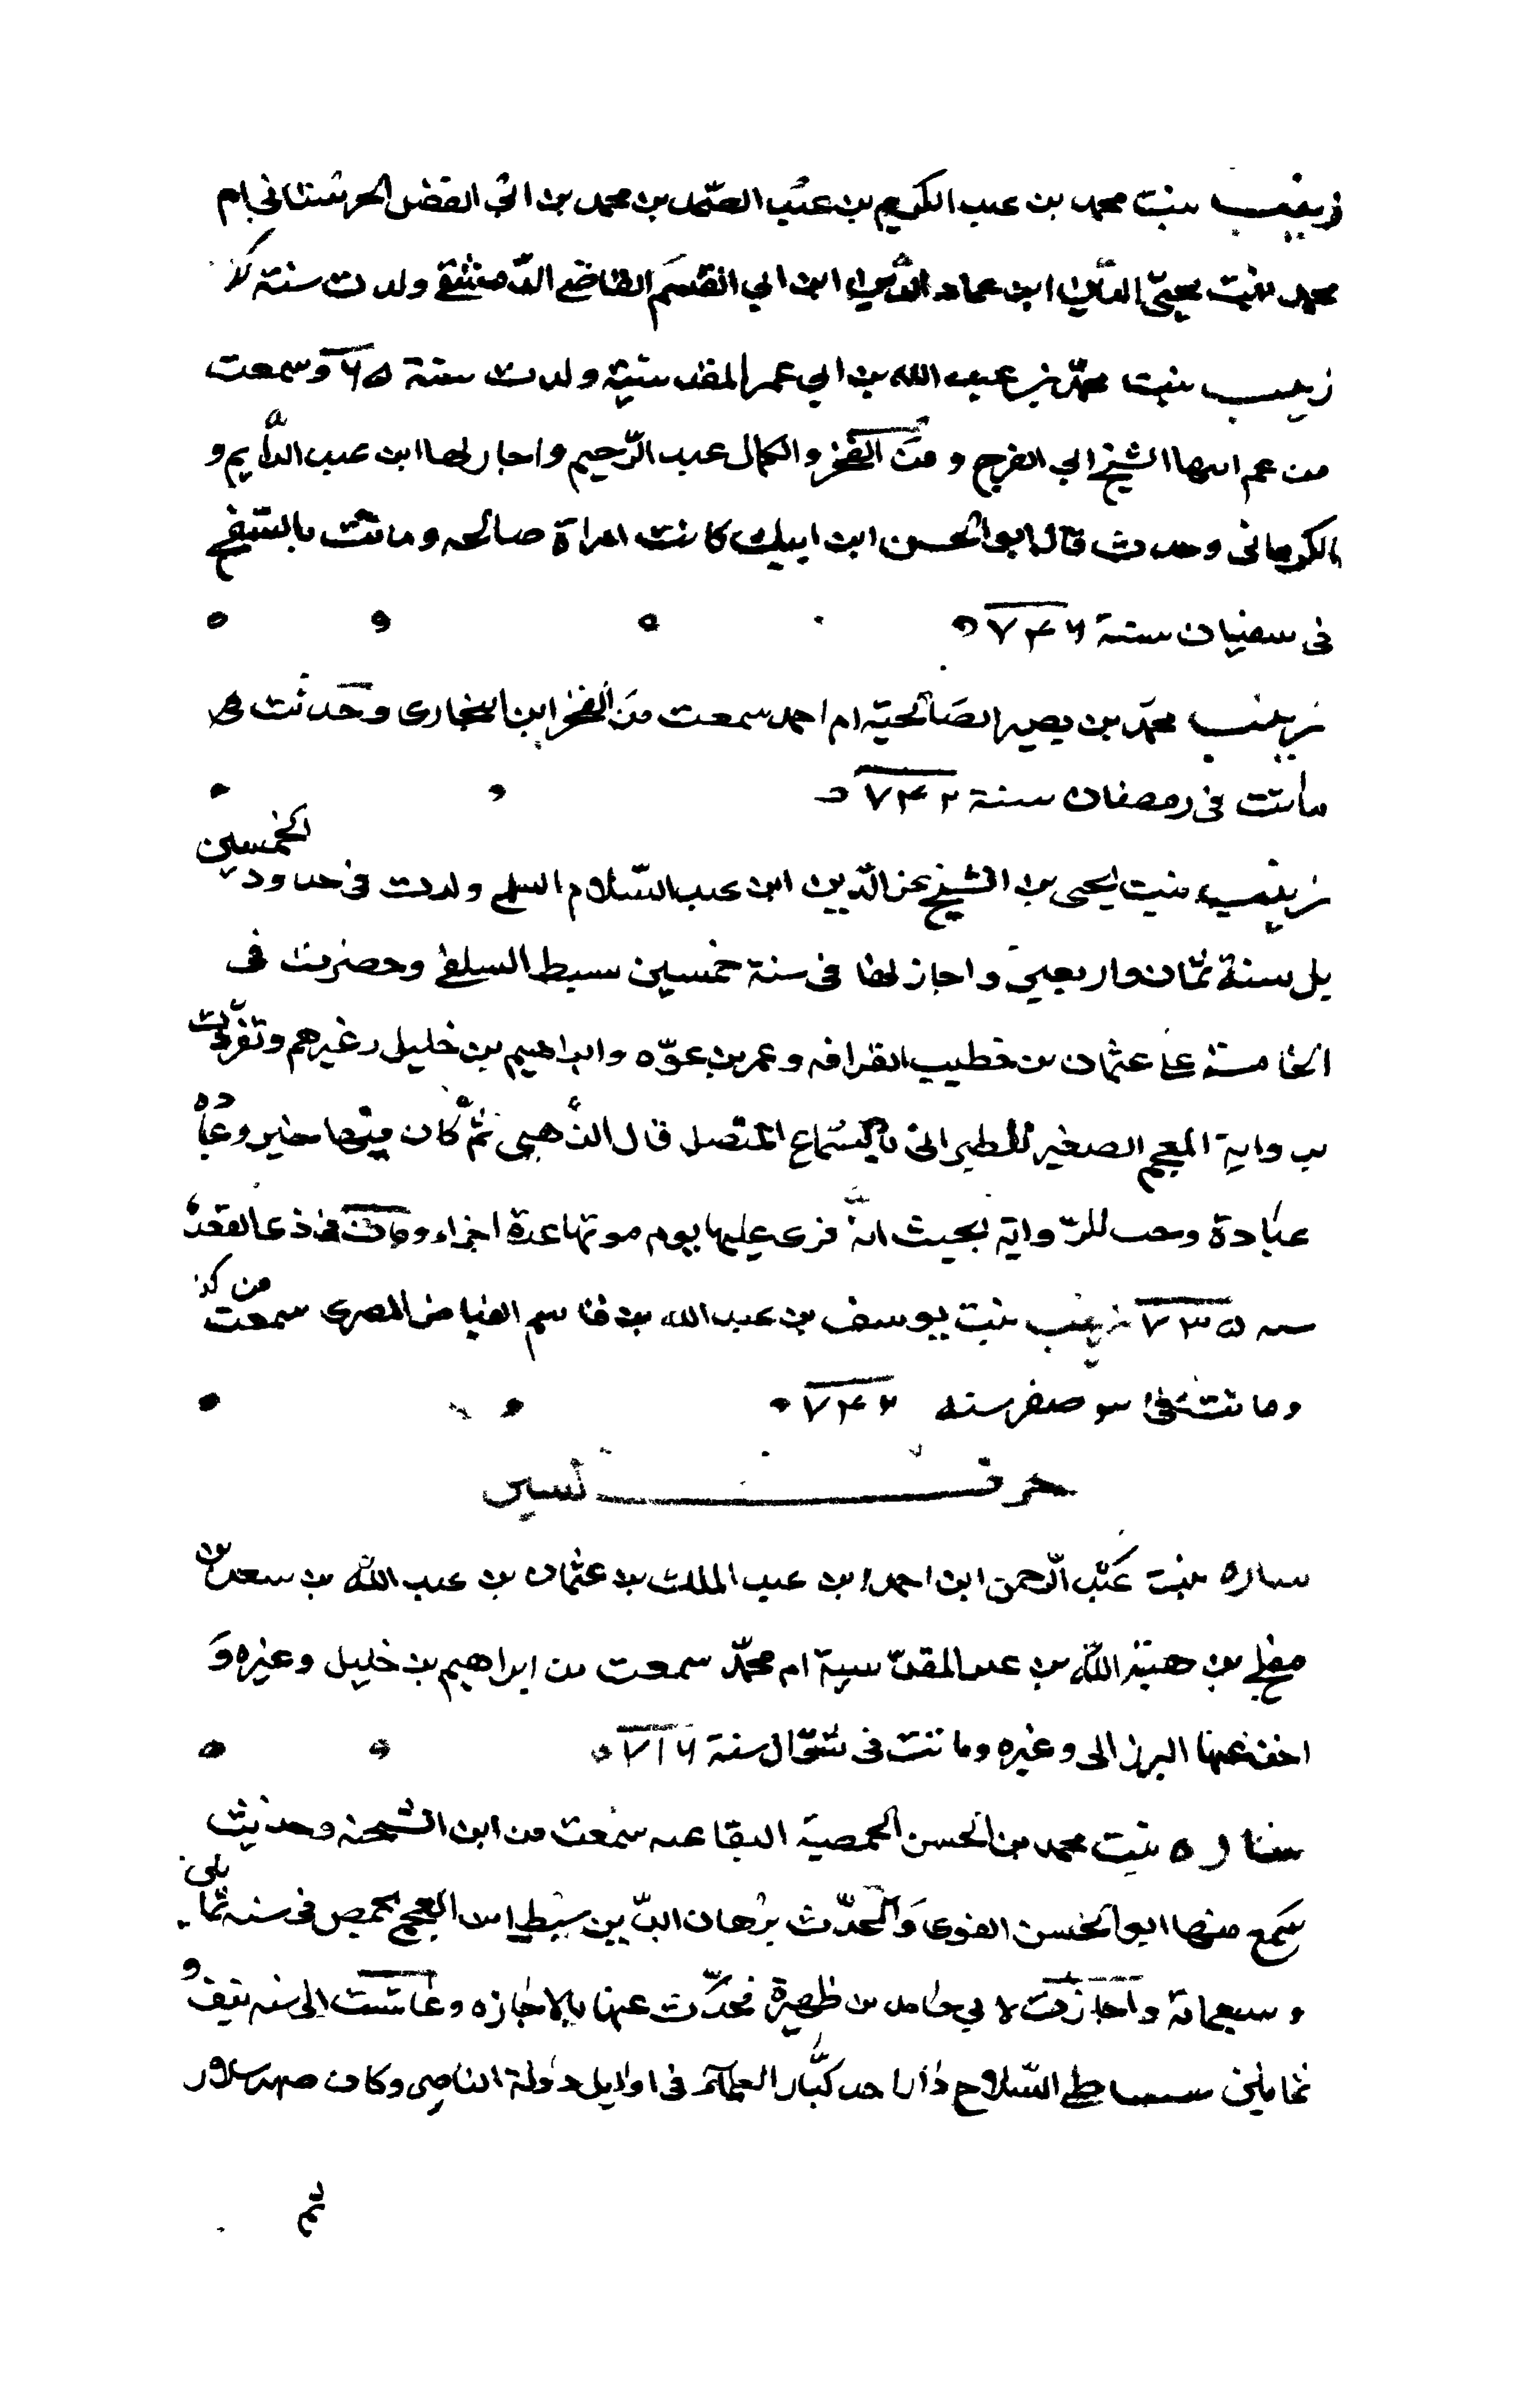 زينب بنت محمد بن عبد الكريم بن عبد الصّمد بن محمد بن ابي الفضل الحرستاني ام
محمد بنت محيّي الدّين ابن عماد الدّين ابن ابي القسم القاضي الدّمشقي ولدت سنة
زينب بنت محمّد بن عبد الله بن ابي عمر المقدسيّة ولدت سنة ٦٥ وسمعت
من عم ابيها الشيخ ابي الفرج ومن الفخر والكمال عبد الرّحيم واجاز لها ابن عبد الدّايم و
الكرماني وحدث قال ابو الحسن ابن ايبك كانت امراة صالحه وماتت بالسّفح
في سعبان سنة ٧٤٦
زينب محمّد بن نصير الصّالحيّة ام احمد سمعت من الفخر ابن البخاري وحدثت
ماتت في رمضان سنة ٧٤٢
زينب بنت يحيى بن الشيخ عز الدّين ابن عبد السّلام السلمي ولدت في حدود الخمسين
بل سنة ثمان واربعين واجاز لها في سنة خمسين سبط السلفي وحضرت في
الخامسة على عثمان بن خطيب القرافه وعمر بن عوّه وابراهيم بن خليل وغيرهم وتفرّدت
برواية المعجم الصغير للطبراني بالسّماع المتصل قال الذّهبي ثمّ كان فيها خير و
عبادة وحب للرّواية بحيث انّه قرى عليها يوم موتها عدة اجزاء وماتت في ذي القعدة
سنه ٧٣٥ زينب بنت يوسف بن عبد الله بن قاسم الفياض المصرى سمعت من
وماتت في صفر سنه ٧٤٢
حرف السين
ساره بنت عبد الرّحمن ابن احمد ابن عبد الملك بن عثمان بن عبد الله بن سعد بن
مفلح بن هبة الله بن المقدّسية ام محمّد سمعت من ابراهيم بن خليل وغيره و
اخذ عنها البرزالى وغيره وماتت في شوّال سنة ٧١٦
ساره بنت محمد بن الحسن الحمصية البقاعيه سمعت من ابن الشحنه وحدثت
سمع منها ابو الحسن الفوى والمحدّث برهان الدّين سبط ابن العجمي بحمص في سنه ثمانين
وسبعماية واجازت لابي حامد بن ظهيرة فحدّث عنها بالاجازه وعاشت الى سنه نيف و
ثمانين ساطي السّلاح دار احد كبار العساكر في اوايل دولة الناصر وكان صهر سلار
ثم